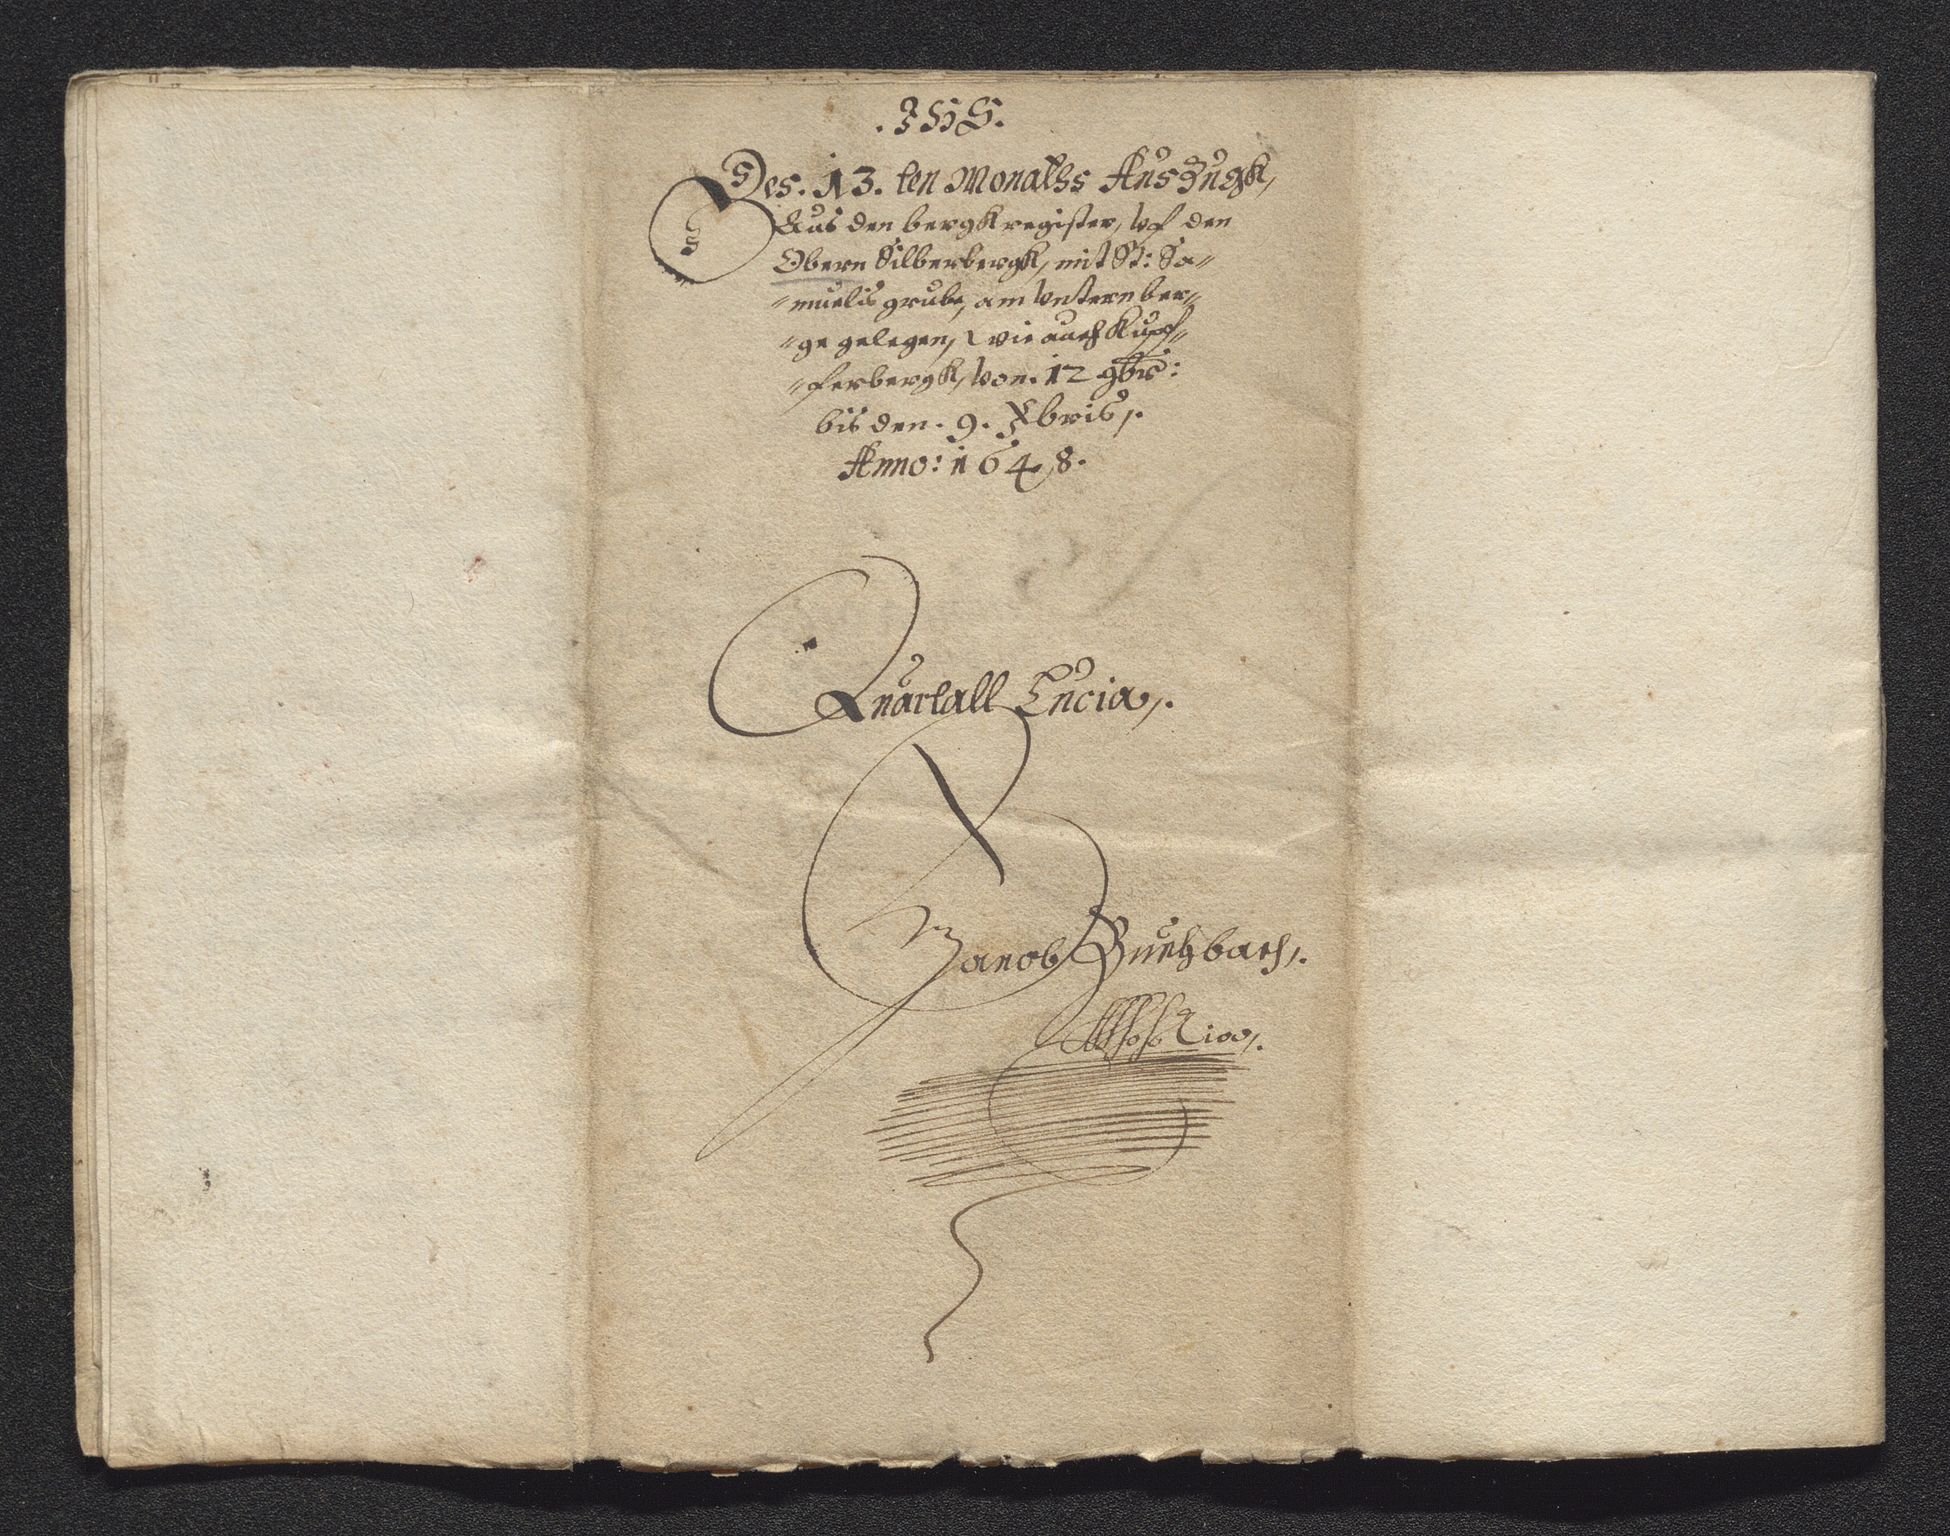 . JHS.
Des. 13. ten Monaths Auszugk,
Aus den bergkregister, Vf den
Obern Silberbergk, mit St: Sa=
=muelis grube, am Vnternber=
=ge gelegen, wie auch Kupf=
=ferbergk, Von. 12 9br̄:
bis den. 9. Xbris,.
Anno: 1648.
Quartall Lucia,.
Jacob Buchbach,.